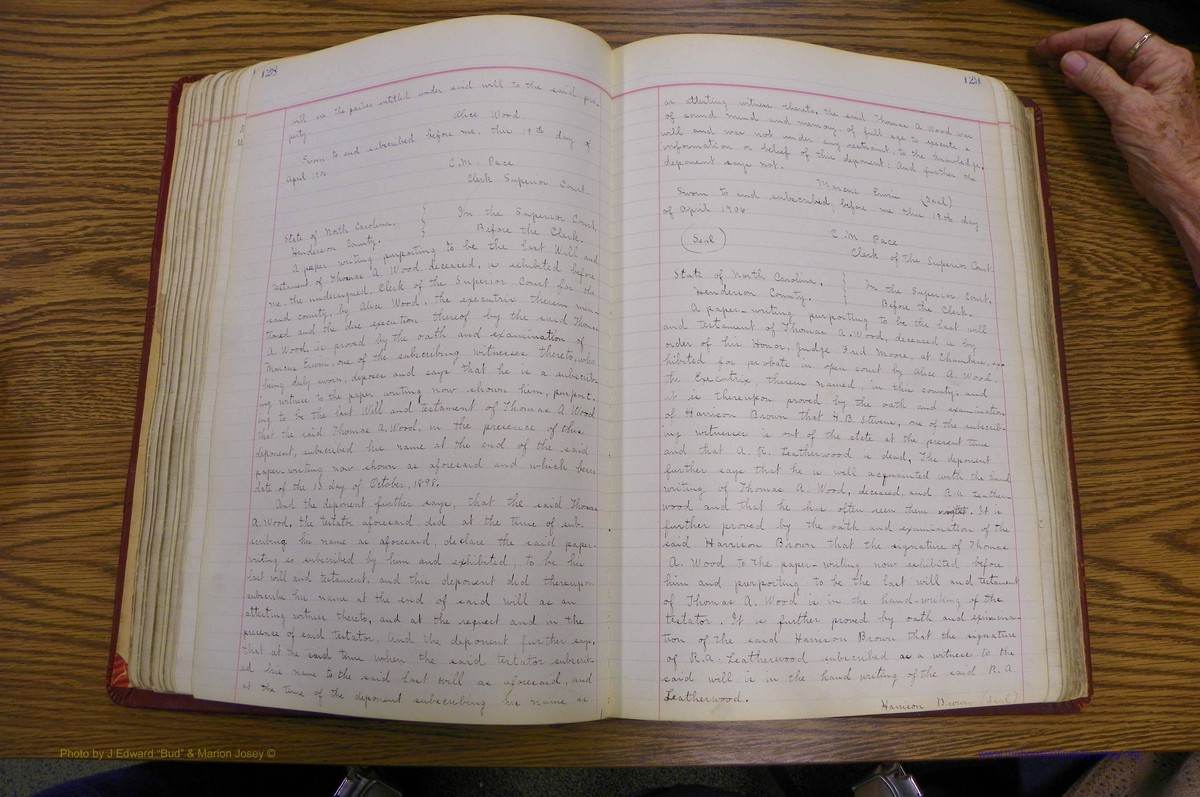 128
will are the parties entitled under said will to the said pro-
perty.
Alice Wood
Sworn to and subscribed before me, this 19th day of
April 1906
C.M. Pace
Clerk Superior Court.
State of North Carolina, } In the Superior Court,
Henderson County. } Before the Clerk.
A paper writing purporting to be the last Will and
testament of Thomas A. Wood, deceased, is exhibited before
me, the undersigned, Clerk of the Superior Court for the
said county, by Alice Wood, the executrix therein men-
tioned and the due execution thereof by the said Thomas
A. Wood, is proved by the oath and examination of
Marcus Erwin, one of the subscribing witnesses thereto, who
being duly sworn, deposes and says that he is a subscrib-
ing witness to the paper writing now shown him, purport-
ing to be the last Will and testament of Thomas A. Wood
that the said Thomas A. Wood, in the presence of this
deponent, subscribed his name at the end of the said
paper writing now shown as aforesaid and which bears
date of the 13 day of October, 1898.
And the deponent further says, that the said Thomas
A. Wood, the testator aforesaid did at the time of sub-
scribing his name as aforesaid, declare the said paper-
writing so subscribed by him and exhibited, to be his
last will and testament, and this deponent did thereupon
subscribe his name at the end of said will as an
attesting witness thereto, and at the request and in the
presence of said testator. And the deponent further says,
that at the said time when the said testator subscrib-
ed his name to the said last will as aforesaid, and
at the time of the deponent subscribing his name as
an attesting witness thereto, the said Thomas A. Wood was
of sound mind and memory, of full age to execute a
will and was not under any restraint, to the knowledge,
information or belief of this deponent: And further the
deponent says not.
Marcus Erwin (Seal)
Sworn to and subscribed, before me this 19th day
of April 1906
(Seal)
C.M. Pace
Clerk of the Superior Court
State of North Carolina, } In the Superior Court,
Henderson County. } Before the Clerk.
A paper-writing purporting to be the last will
and testament of Thomas A. Wood, deceased is by
order of his Honor, Judge Fred Moore, at Chambers, ex-
hibited for probate in open court by Alice A. Wood,
the Executrix, therein named, in this county, and
it is thereupon proved by the oath and examination
of Harrison Brown that H.B. Stevens, one of the subscrib-
ing witnesses is out of the state at the present time
and that A. R. Leatherwood is dead, The deponent
further says that he is well acquainted with the hand
writing of Thomas A. Wood, deceased, and R.A. Leather-
wood and that he has often seen them write. It is
further proved by the oath and examination of the
said Harrison Brown that the signature of Thomas
A. Wood to the paper-writing now exhibited before
him and purporting to be the last will and testament
of Thomas A. Wood is in the hand-writing of the
testator. It is further proved by oath and examina-
tion of the said Harrison Brown that the signature
of R.A. Leatherwood subscribed as a witness to the
said will is in the hand writing of the said R.A.
Leatherwood.
Harrison Brown (Seal)
Photo by J Edward "Bud" & Marion Josey ©